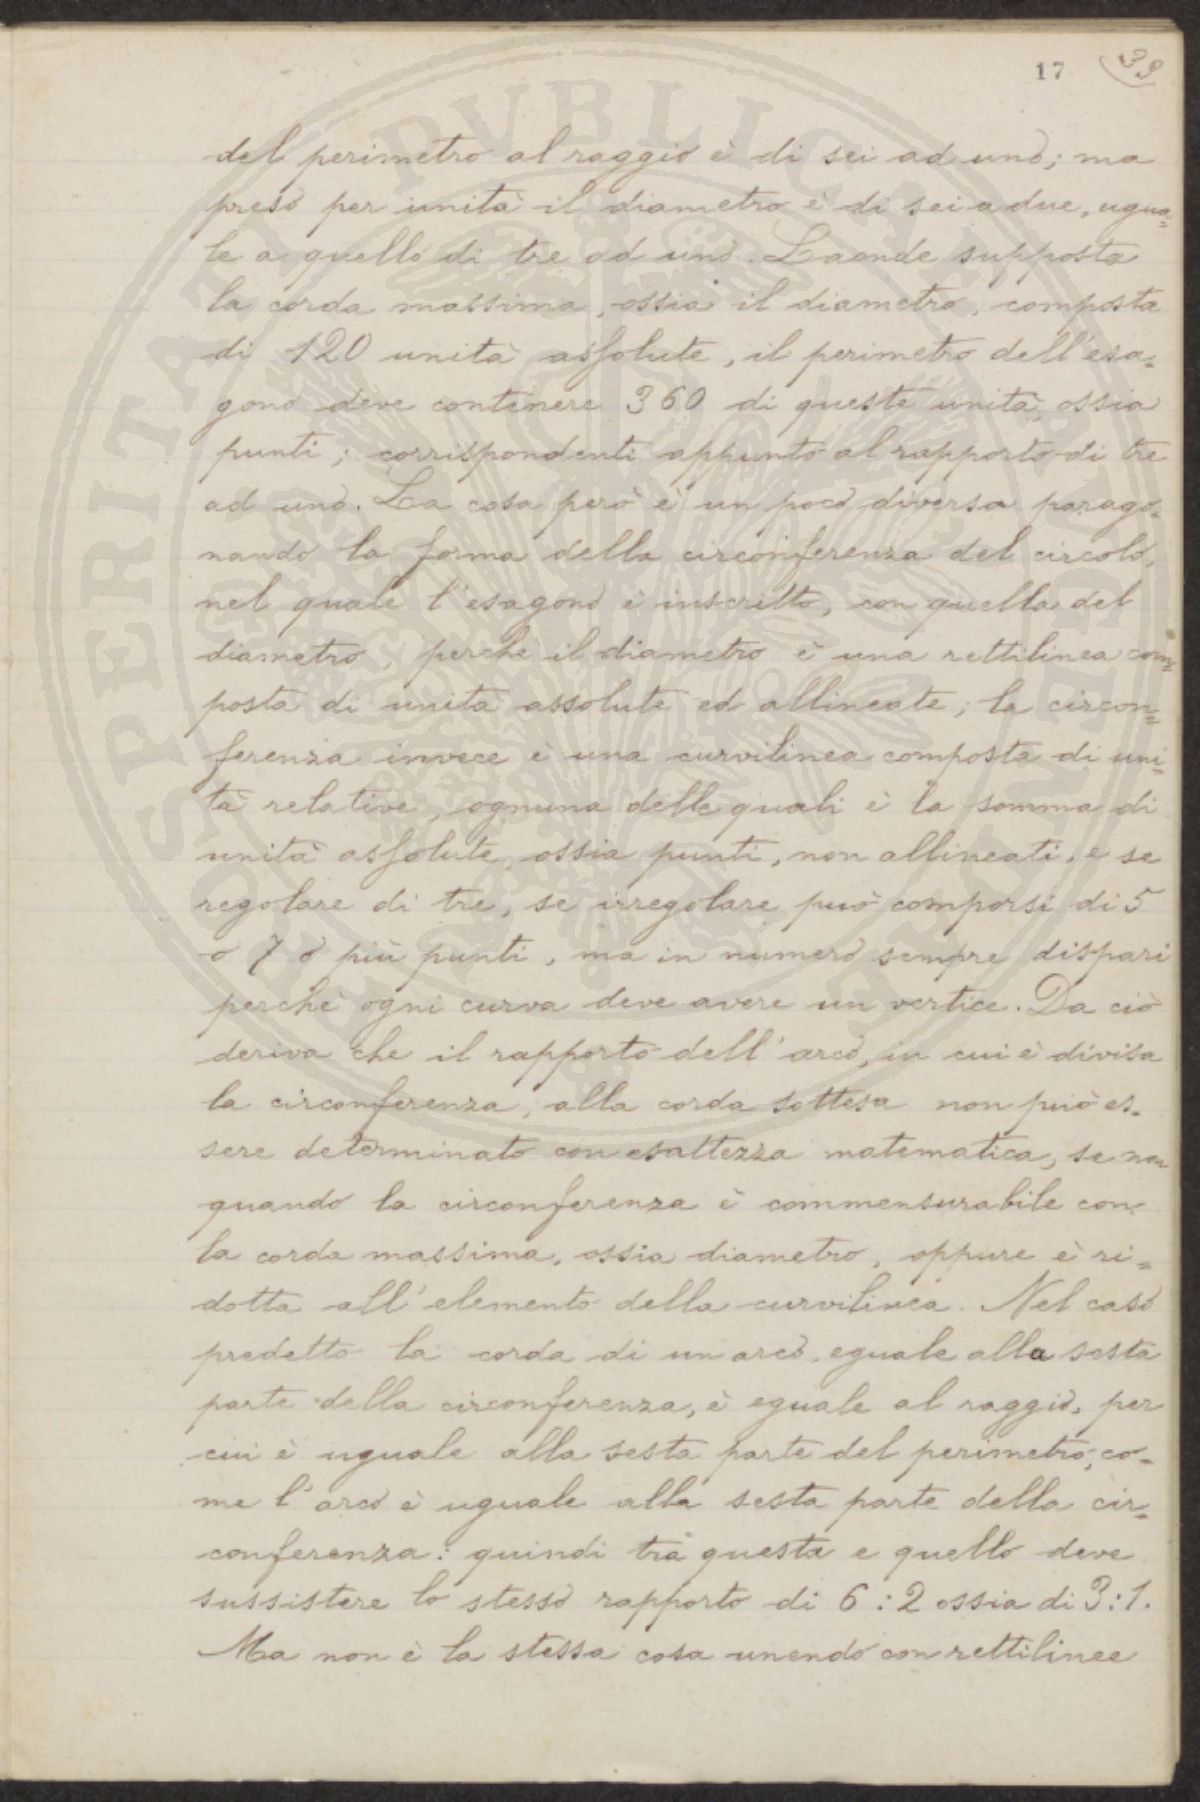 17 39
del perimetro al raggio è di sei ad uno; ma
preso per unità il diametro è di sei a due, ugua=
le a quello di tre ad uno. Laonde supposta
la corda massima, ossia il diametro, composta
di 120 unità assolute, il perimetro dell'esa=
gono deve contenere 360 di queste unità, ossia
punti; corrispondenti appunto al rapporto di tre
ad uno. La cosa però è un poco diversa parago=
nando la forma della circonferenza del circolo,
nel quale l'esagono è inscritto, con quella del
diametro, perchè il diametro è una rettilinea com=
posta di unità assolute ed allineate; la circon=
ferenza invece è una curvilinea composta di uni=
tà relative, ognuna delle quali è la somma di
unità assolute, ossia punti, non allineati, e se
regolare di tre, se irregolare può comporsi di 5
o 7 o più punti, ma in numero sempre dispari
perchè ogni curva deve avere un vertice. Da ciò
deriva che il rapporto dell'arco, in cui è divisa
la circonferenza, alla corda sottesa non può es=
sere determinato con esattezza matematica, se non
quando la circonferenza è commensurabile con
la corda massima, ossia diametro, oppure è ri=
dotta all'elemento della curvilinea. Nel caso
predetto la corda di un arco, eguale alla sesta
parte della circonferenza, è eguale al raggio, per
cui è uguale alla sesta parte del perimetro, co=
me l'arco è uguale alla sesta parte della cir=
conferenza: quindi tra questa e quello deve
sussistere lo stesso rapporto di 6:2 ossia di 3:1.
Ma non è la stessa cosa unendo con rettilinee